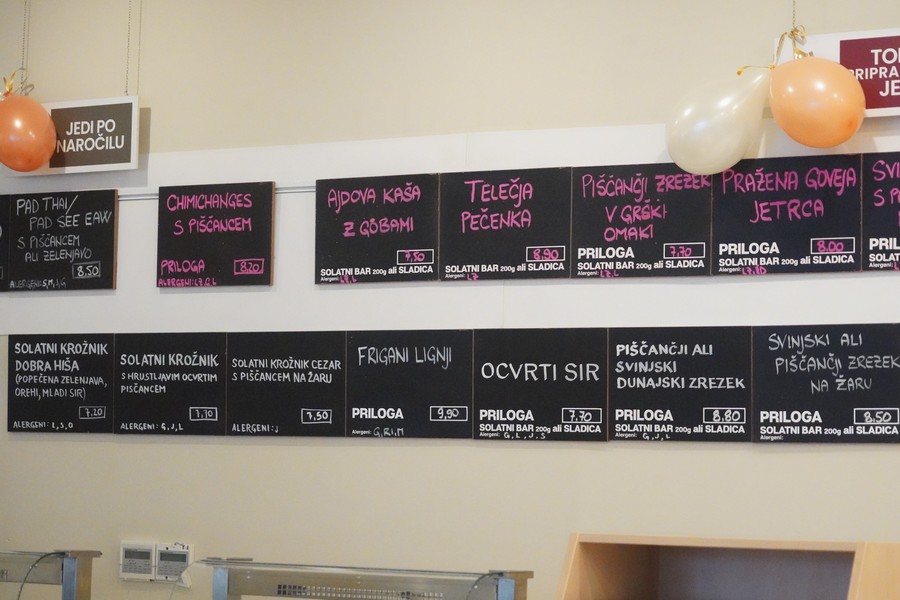 JEDI PO
NAROČILU
PAD THAI/
PAD SEE EAW
S PIŠČANCEM
ALI ZELENJAVO
8,50
CHIMICHANGES
S PIŠČANCEM
PRILOGA
8,20
AJDOVA KAŠA
Z GOBAMI
7,50
SOLATNI BAR 200g ali SLADICA
Alergeni:
TELEČJA
PEČENKA
8,90
SOLATNI BAR 200g ali SLADICA
Alergeni:
PIŠČANČJI ZREZEK
V GRŠKI
OMAKI
PRILOGA
7,70
SOLATNI BAR 200g ali SLADICA
Alergeni:
PRAŽENA GOVEJA
JETRCA
PRILOGA
8,00
SOLATNI BAR 200g ali SLADICA
Alergeni:
SOLATNI KROŽNIK
DOBRA HIŠA
(POPEČENA ZELENJAVA,
OREHI, MLADI SIR)
7,20
ALERGENI: L, S, O
SOLATNI KROŽNIK
S HRUSTLJAVIM OCVRTIM
PIŠČANCEM
7,70
ALERGENI: G, J, L
SOLATNI KROŽNIK CEZAR
S PIŠČANCEM NA ŽARU
7,50
ALERGENI: J
FRIGANI LIGNJI
PRILOGA
9,90
Alergeni: G, R, M
OCVRTI SIR
PRILOGA
7,70
SOLATNI BAR 200g ali SLADICA
Alergeni: G, L, J, S
PIŠČANČJI ALI
SVINJSKI
DUNAJSKI ZREZEK
PRILOGA
8,80
SOLATNI BAR 200g ali SLADICA
Alergeni: G, J, L
SVINJSKI ALI
PIŠČANČJI ZREZEK
NA ŽARU
PRILOGA
8,50
SOLATNI BAR 200g ali SLADICA
Alergeni: